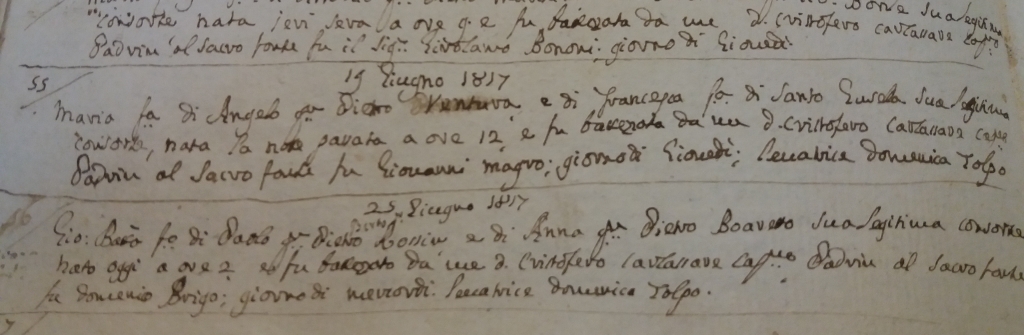 consorte nata jeri sera a ore 9 e fu battezzata da me d. Cristofero Cavassare Capno
Padrin al sacro fonte fu il Sigr. Girolamo Bonomi; giorno di Giovedì.
55
19 Giugno 1817
Maria fa. di Angelo qm Pietro Ventura e di Francesca fa. di Santo Eusela sua legitima
consorte, nata la note pasata a ore 12, e fu battezzata da me d. Cristofero Cavassare Capno
Padrin al Sacro fonte fu Giovanni magro; giorno di Giovedì; levatrice domenica Tolpo
56
25 Giugno 1817
Gio: Batta fo. di Paolo qm Pietro e di Anna qm Pietro Boavero sua legitima consorte
nato oggi a ore 2 e fu battezzato da me d. Cristofero Cavassare Capno Padrin al sacro fonte
fu domenico Brigo; giorno di mercordì. levatrice domenica Tolpo.